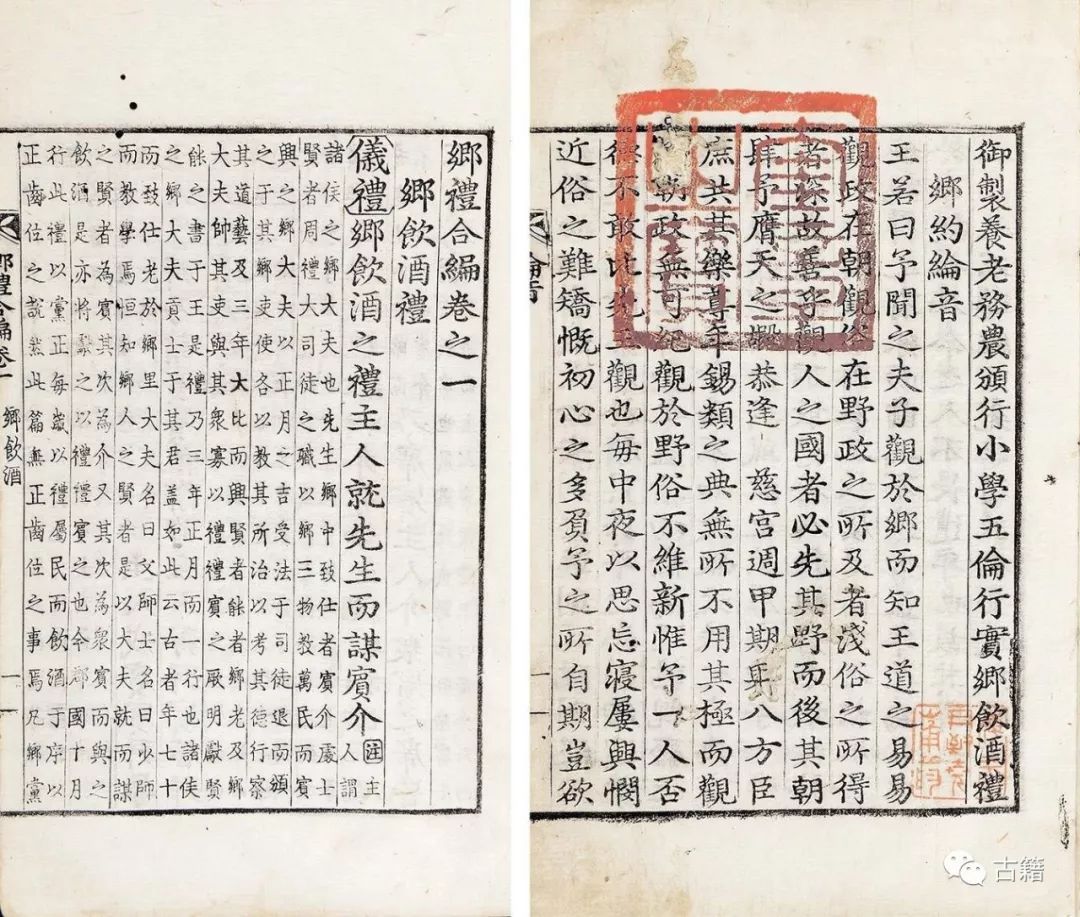 御製養老務農頒行小學五倫行實鄉飲酒禮
鄉約綸音
王若曰予聞之夫子觀於鄉而知王道之易易
觀政在朝觀俗在野政之所及者淺俗之所得
者深故善乎觀人之國者必先其野而後其朝
肆予膺天之 恭逢 慈宮週甲期年八方臣
庶共其樂尊年錫類之典無所不用其極而觀
朝政無可紀觀於野俗不維新惟予一人否
德不敢比先王觀也每中夜以思忘寢屢興憫
近俗之難矯慨初心之多負予之所自期豈欲
綸音
鄉禮合編卷之一
鄉飲酒禮
儀禮鄉飲酒之禮主人就先生而謀賓介 注 主人謂
諸侯之鄉大夫也先生鄉中致仕者賓介處士
賢者周禮大司徒之職以鄉三物教萬民而賓
興之鄉大夫以正月之吉受法于司徒退而頒
之于其鄉吏使各以教其所治以考其德行察
其道藝及三年大比而興賢者能者鄉老及鄉
大夫帥其吏與其衆寡以禮禮賓之厥明獻賢
能之書于王是禮乃三年正月而一行也諸侯
之鄉大夫貢士于其君盖如此云古者年七十
而致仕老於鄉里大夫名曰父師士名曰少師
而教學焉恒知鄉人之賢者是以大夫就而謀
之賢者為賓其次為介又其次為衆賓而與之
飲酒是亦將獻之以禮禮賓之也今郡國十月
行此禮以黨正每歲以禮屬民而飲酒于序以
正齒位之說然此篇無正齒位之事焉凡鄉黨
鄉禮合編卷一 鄉飲酒 一
古籍